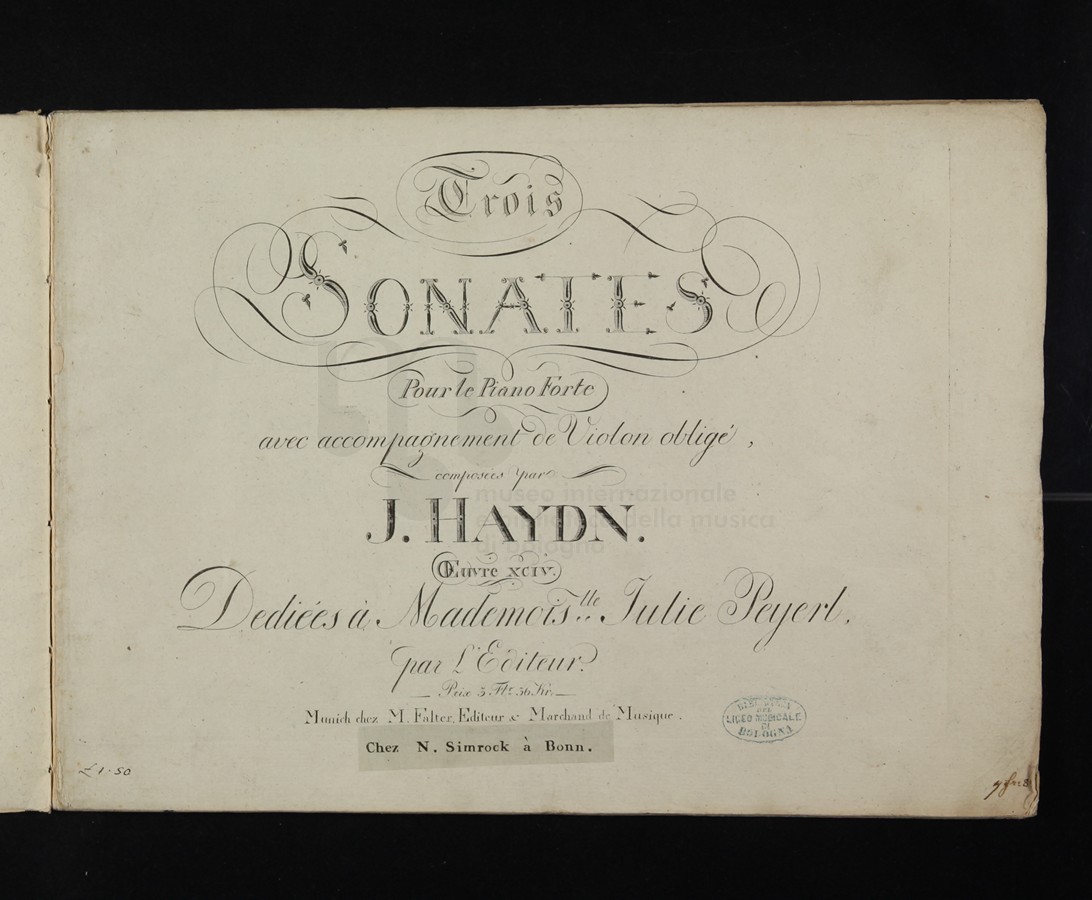 Trois
SONATES
Pour le Piano Forte
avec accompagnement de Violon obligé,
composées par
J. HAYDN.
Œuvre XCIV.
Dediées à Mademois.lle Julie Peyerl.
par L'Editeur.
Prix 3 Fl. 36 Kr.
Munich chez M. Falter, Editeur & Marchand de Musique.
Chez N. Simrock à Bonn.
BIBLIOTECA
DEL
LICEO MUSICALE
DI
BOLOGNA
£ 1.50
museo internazionale
e biblioteca della musica
di bologna